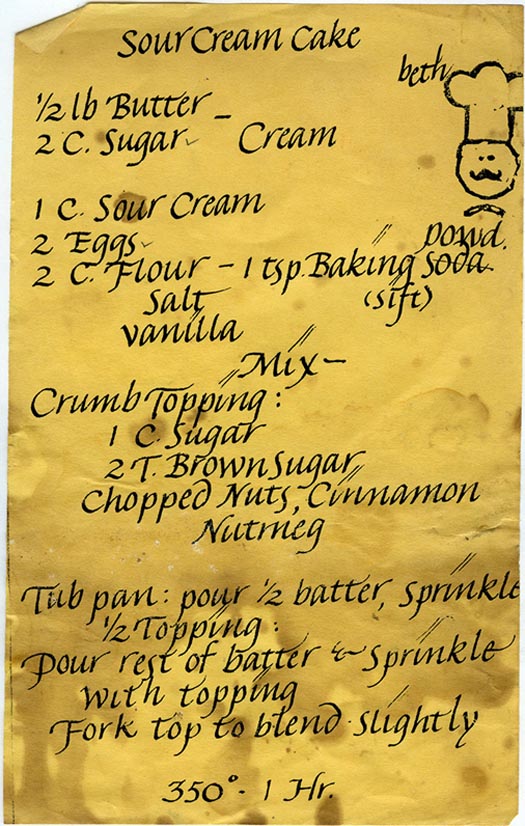 Sour Cream Cake
beth
1/2 lb Butter –
2 C. Sugar Cream
1 C. Sour Cream
2 Eggs
powd.
2 C. Flour – 1 tsp. Baking Soda
Salt (sift)
vanilla
Mix –
Crumb Topping :
1 C. Sugar
2 T. Brown Sugar
Chopped Nuts, Cinnamon
Nutmeg
Tub pan: pour 1/2 batter, Sprinkle
1/2 Topping :
Pour rest of batter & Sprinkle
with topping
Fork top to blend slightly
350° - 1 Hr.